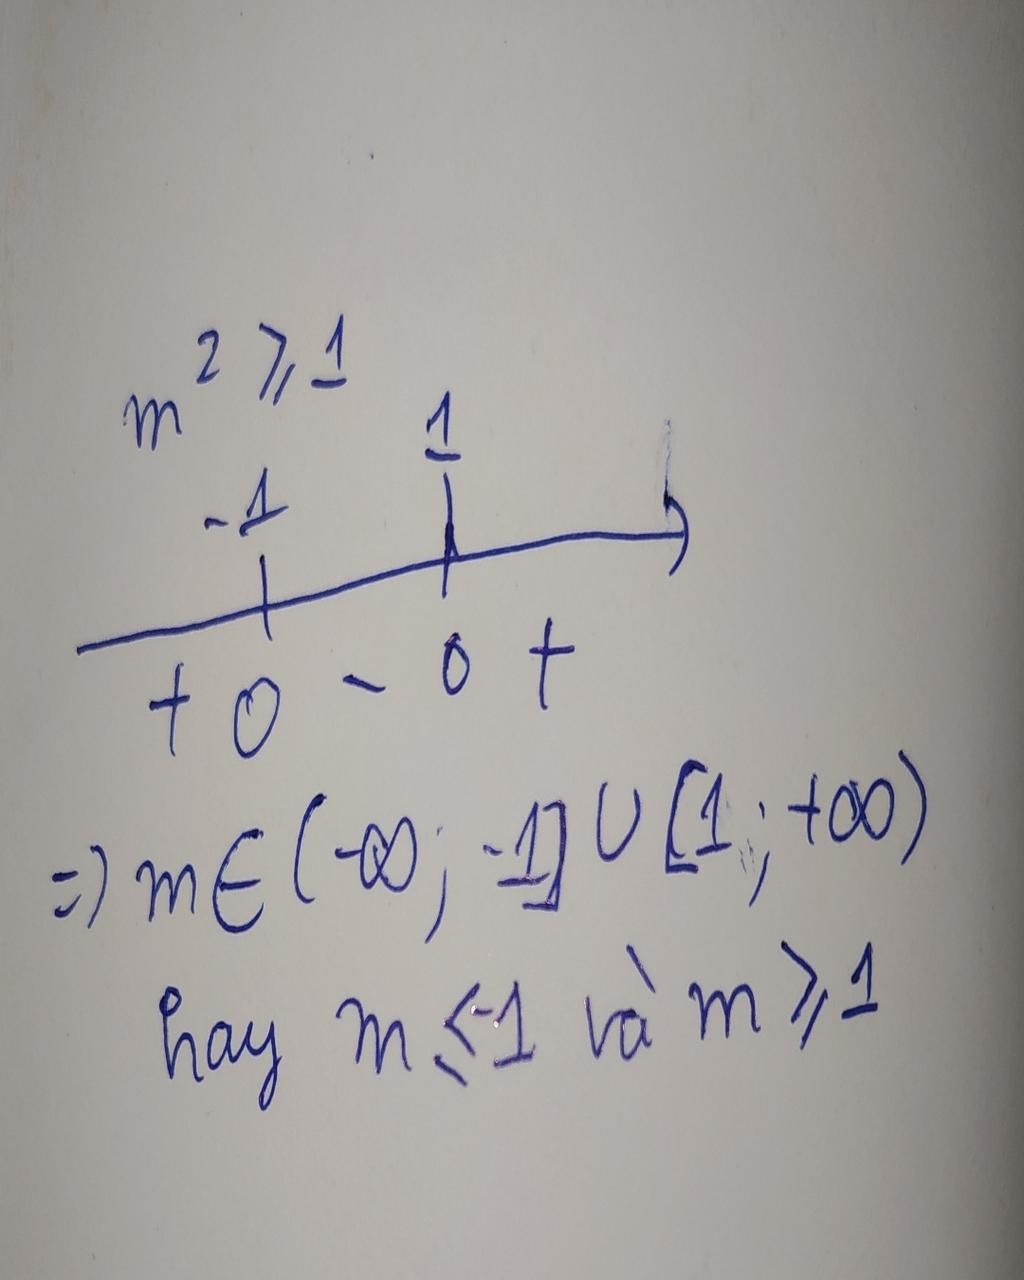 m² ≥ 1
-1 1
+ 0 - 0 +
=) m ∈ (-∞; -1] ∪ [1; +∞)
hay m ≤ -1 và m ≥ 1